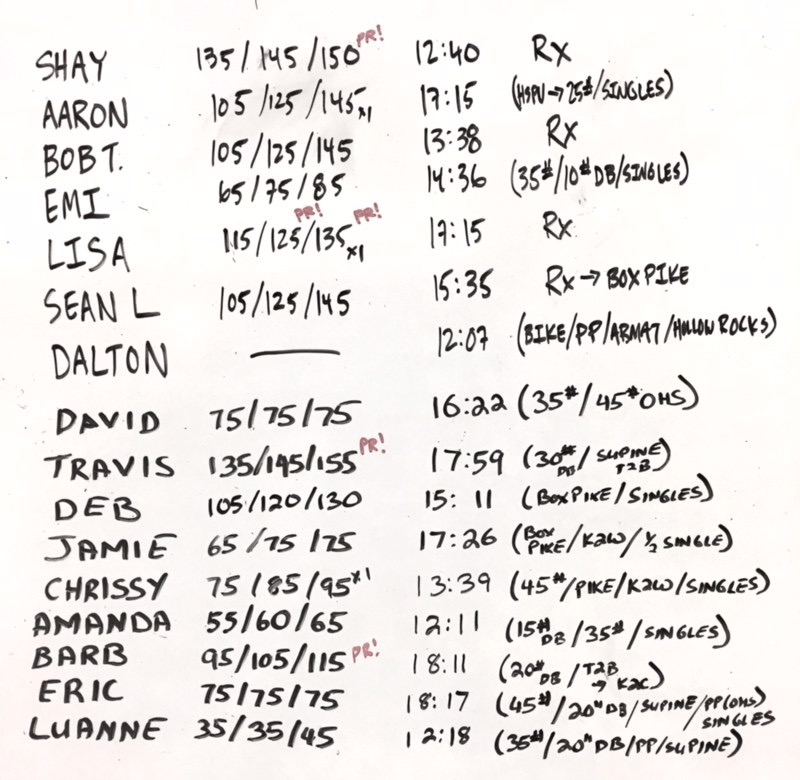 SHAY 135/145/150 PR! 12:40 Rx
AARON 105/125/145 x1 17:15 (HSPU→25#/SINGLES)
BOB T. 105/125/145 13:38 Rx
EMI 65/75/85 14:36 (35#/10# DB/SINGLES)
LISA 115/125 PR!/135 x1 PR! 17:15 Rx
SEAN L 105/125/145 15:35 Rx→BOX PIKE
DALTON — 12:07 (BIKE/PP/ABMAT/HOLLOW ROCKS)
DAVID 75/75/75 16:22 (35#/45# OHS)
TRAVIS 135/145/155 PR! 17:59 (30# DB/SUPINE T2B)
DEB 105/120/130 15:11 (BOX PIKE/SINGLES)
JAMIE 65/75/75 17:26 (BOX PIKE/K2W/½ SINGLE)
CHRISSY 75/85/95 x1 13:39 (45#/PIKE/K2W/SINGLES)
AMANDA 55/60/65 12:11 (15# DB/35#/SINGLES)
BARB 95/105/115 PR! 18:11 (20# DB/T2B → K2C)
ERIC 75/75/75 18:17 (45#/20# DB/SUPINE/PP(OHS) SINGLES
LUANNE 35/35/45 12:18 (35#/20# DB/PP/SUPINE)